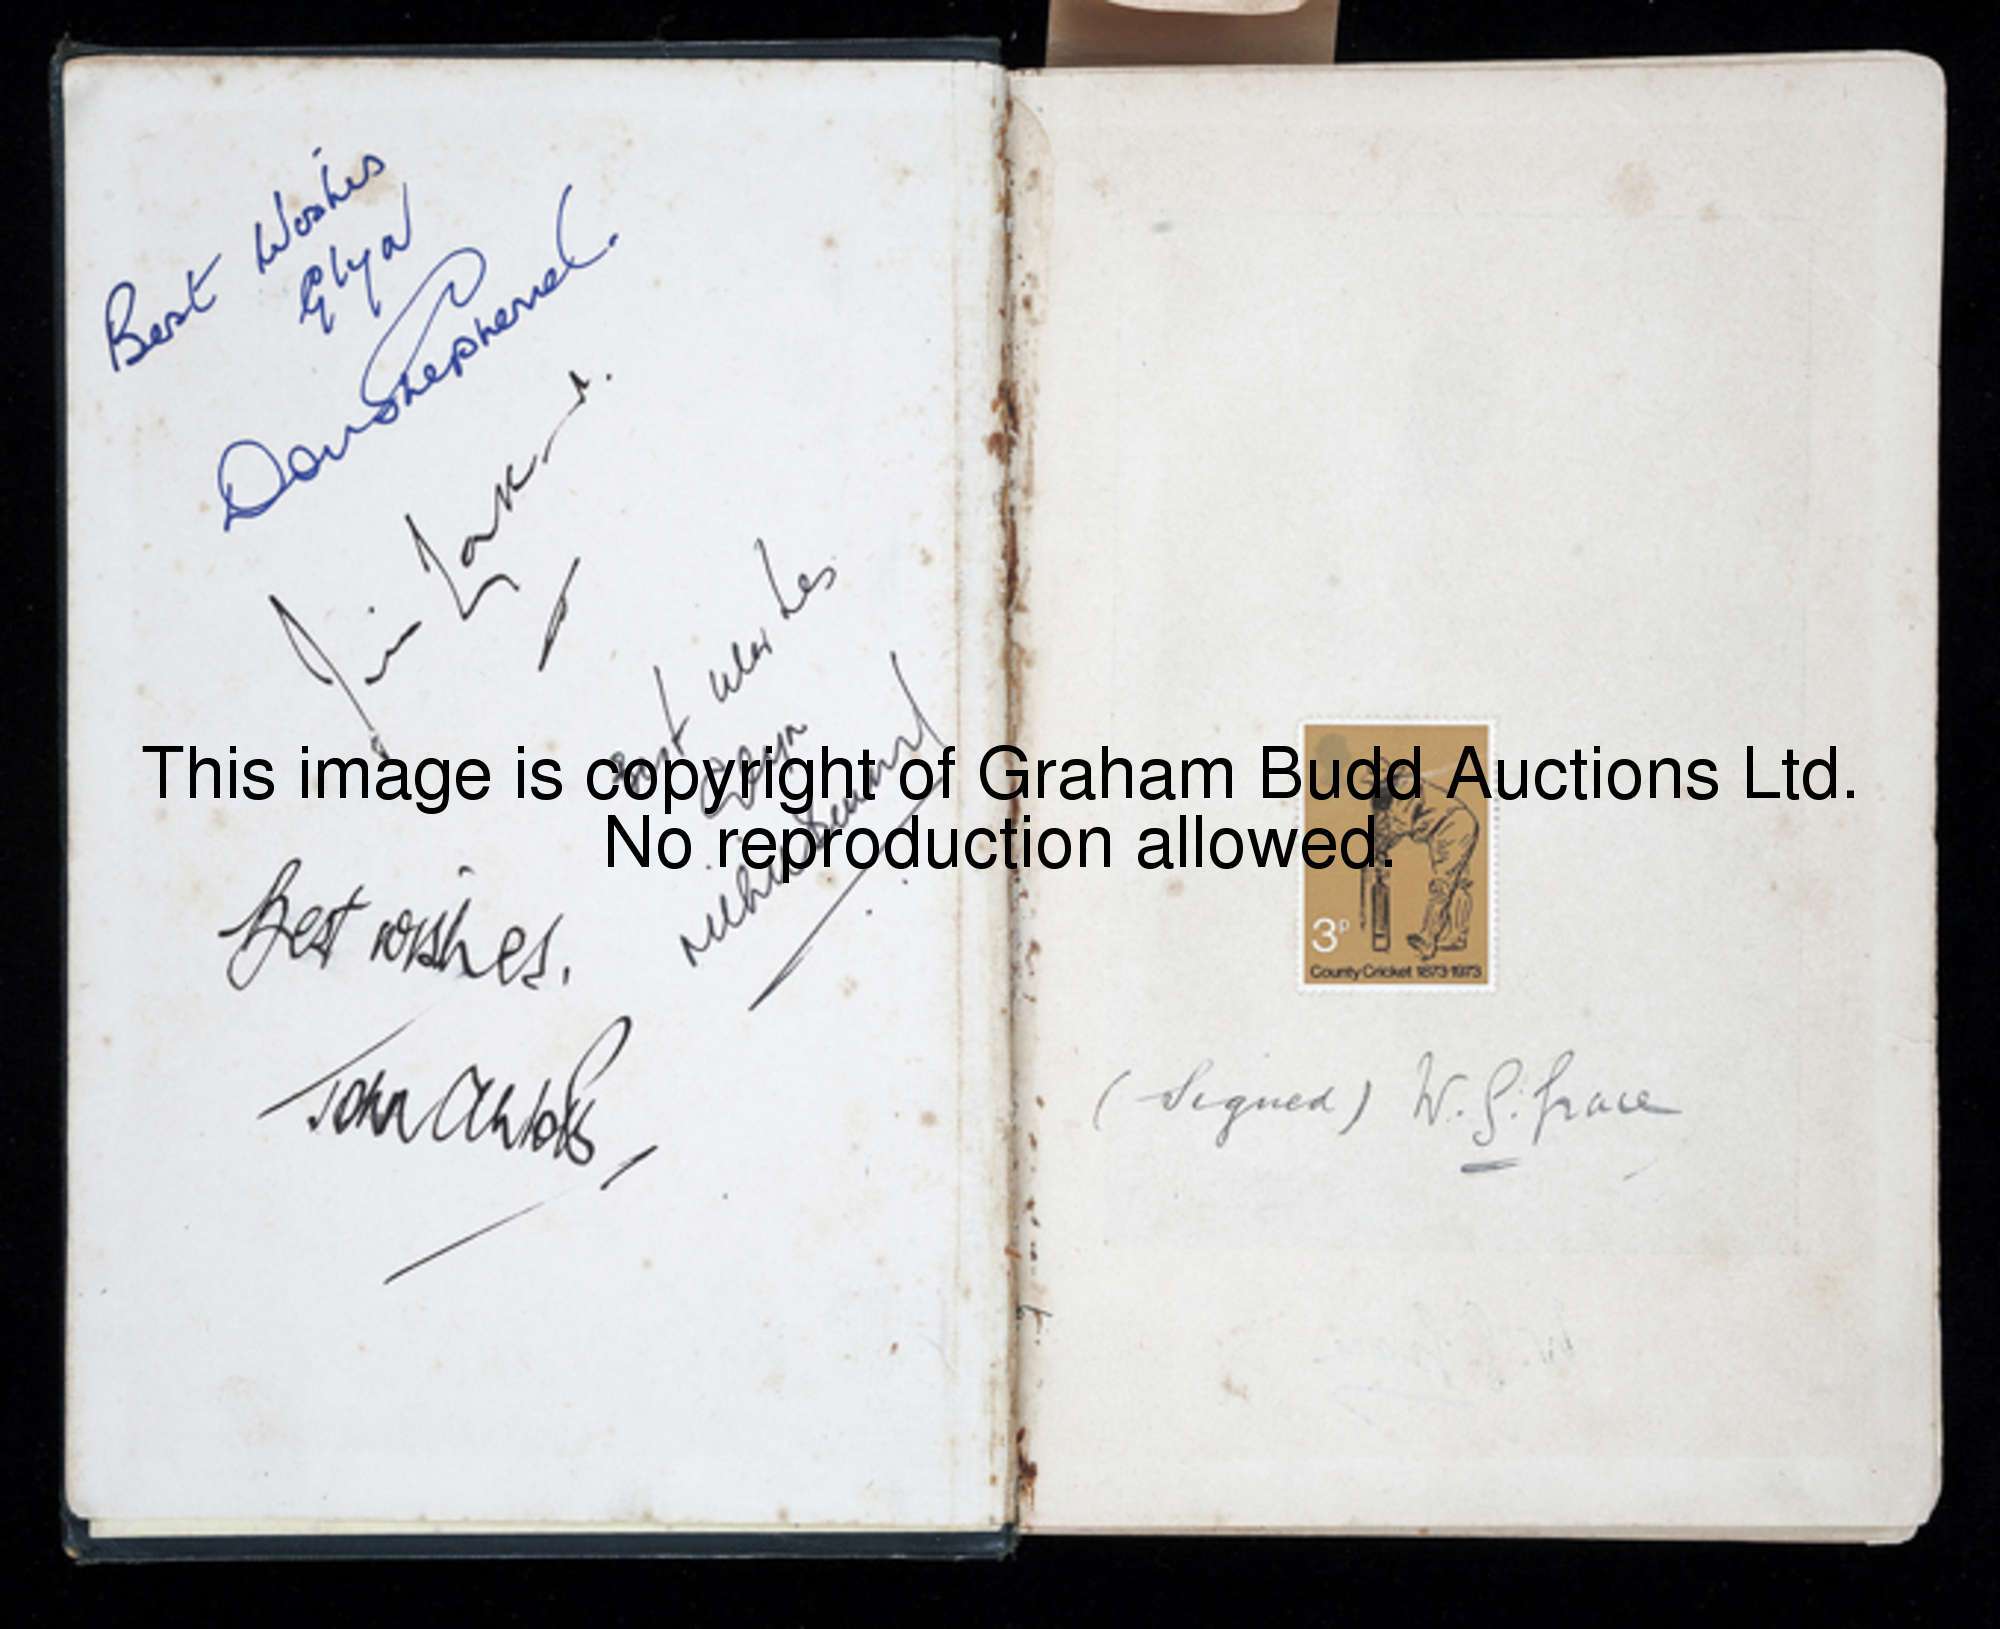 Best Wishes
Glyn
Don Shepherd.
Jim
Best wishes
This image is copyright of Graham Budd Auctions Ltd.
No reproduction allowed.
Best wishes.
John
3p
County Cricket 1873-1973
(Signed) W. G. Grace